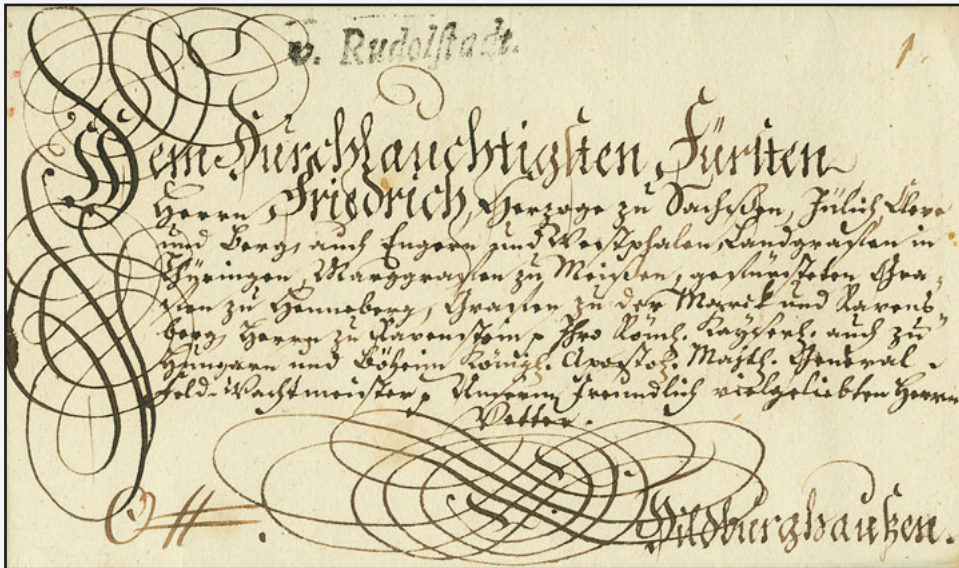 v. Rudolstadt.
1.
Dem Durchlauchtigsten Fürsten
Herrn Friedrich, Herzoge zu Sachßen, Jülich, Cleve
und Berg, auch Engern und Westphalen, Landgrafen in
Thüringen, Marggrafen zu Meißen, gefürsteten Gra-
fen zu Henneberg, Grafen zu der Marck und Ravens-
berg, Herrn zu Ravenstein, Ihro Röml. Kayserl. auch zu
Hungarn und Böheim Königl. Apostol. Majtt. General-
Feld-Wachtmeister, Unserm freundlich vielgeliebten Herrn
Vetter.
Hildburghaußen.